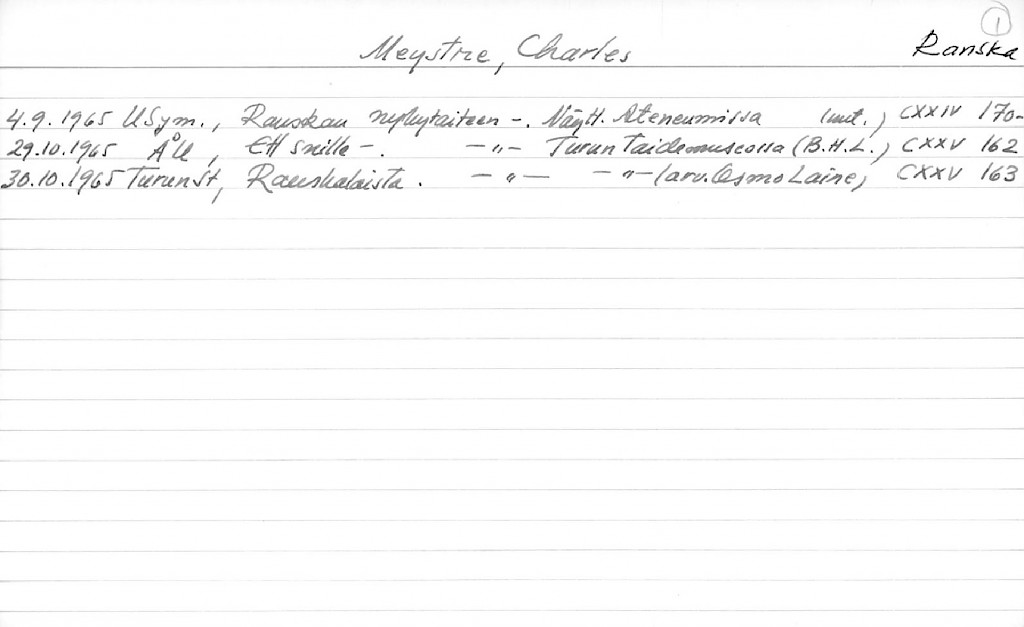 1
Meystre, Charles Ranska
4.9.1965 USym., Ranskan nykytaiteen -. Näytt. Ateneumissa (uut.) CXXIV 170-
29.10.1965 ÅU, Ett snille -. -"- Turun Taidemuseossa (B.H.L.) CXXV 162
30.10.1965 TurunSt, Ranskalaista. -"- -"- (arv. Osmo Laine) CXXV 163